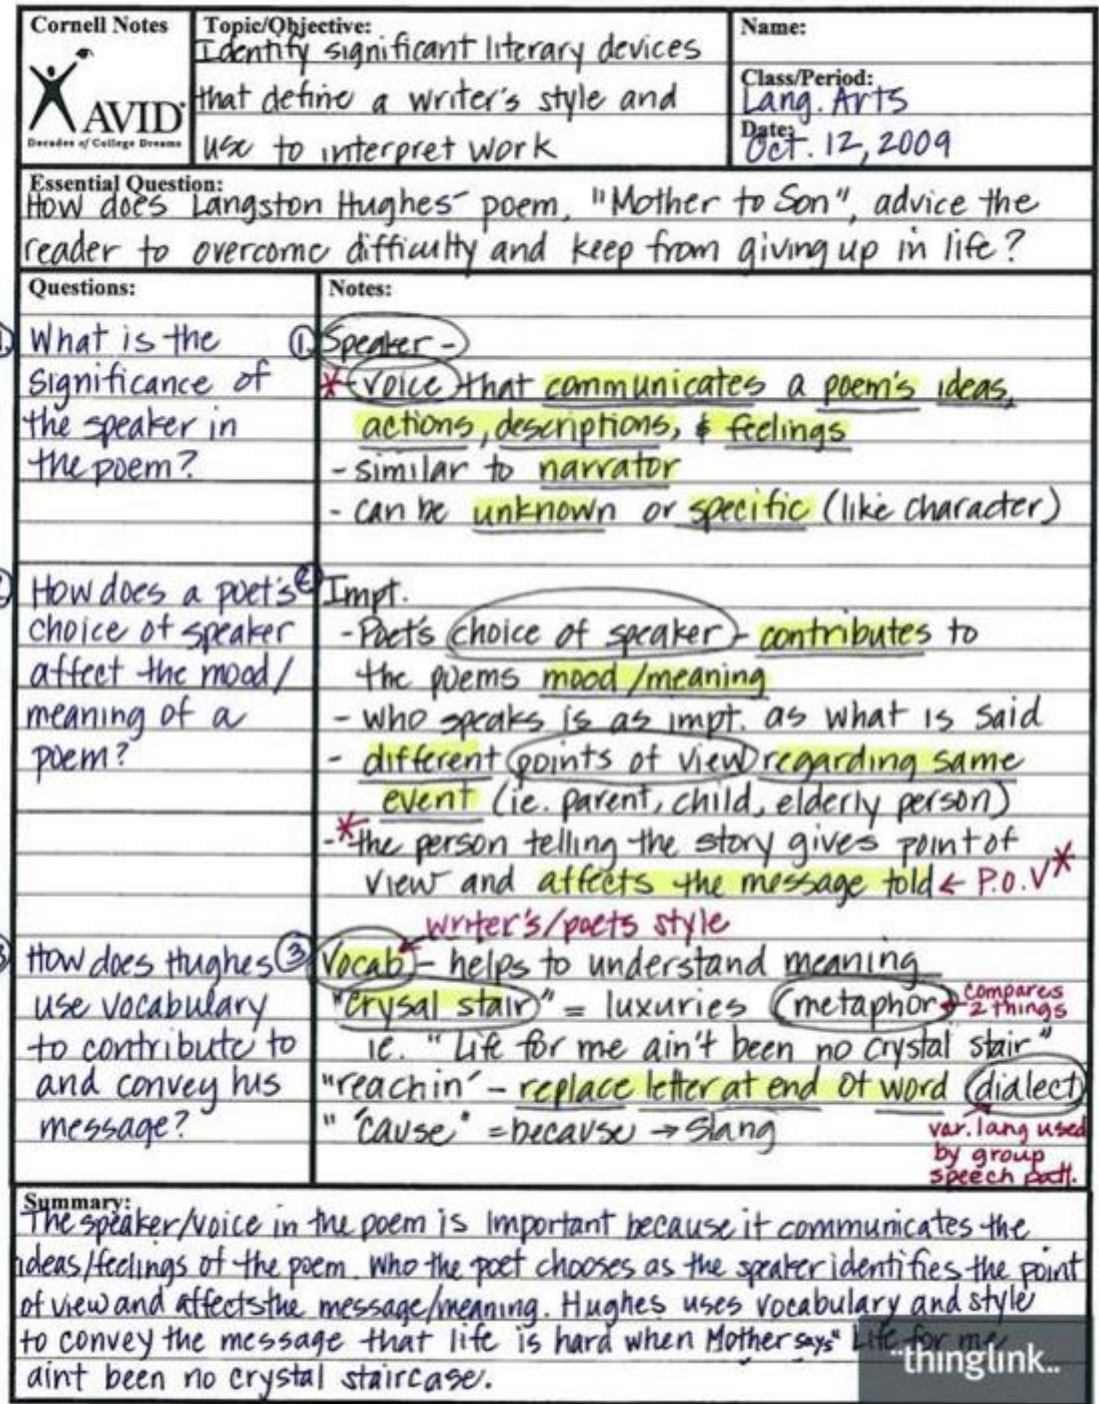 Cornell Notes
AVID
Decades of College Dreams
Topic/Objective:
Identify significant literary devices
that define a writer's style and
use to interpret work
Name:
Class/Period:
Lang. Arts
Date:
Oct. 12, 2009
Essential Question:
How does Langston Hughes' poem, "Mother to Son", advice the
reader to overcome difficulty and keep from giving up in life?
Questions:
1. What is the
significance of
the speaker in
the poem?
How does a poet's
choice of speaker
affect the mood/
meaning of a
poem?
How does Hughes
use vocabulary
to contribute to
and convey his
message?
Notes:
1. Speaker -
* - voice that communicates a poem's ideas,
actions, descriptions, & feelings
- similar to narrator
- can be unknown or specific (like character)
2 Impt.
- Poet's choice of speaker - contributes to
the poems mood/meaning
- who speaks is as impt. as what is said
- different points of view regarding same
event (ie. parent, child, elderly person)
- * the person telling the story gives point of
view and affects the message told ← P.O.V *
writer's/poets style
3 Vocab - helps to understand meaning
"crysal stair" = luxuries (metaphor) ← compares
2 things
ie. "Life for me ain't been no crystal stair"
"reachin' - replace letter at end of word (dialect)
" 'cause" = because → slang
var. lang used
by group
speech patt.
Summary:
The speaker/voice in the poem is important because it communicates the
ideas/feelings of the poem. Who the poet chooses as the speaker identifies the point
of view and affects the message/meaning. Hughes uses vocabulary and style
to convey the message that life is hard when Mother says "Life for me
aint been no crystal staircase.
thinglink..